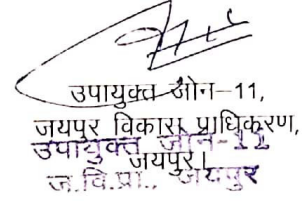 उपायुक्त जोन-11,
जयपुर विकास प्राधिकरण,
जयपुर।
उपायुक्त जोन-11
ज.वि.प्रा., जयपुर